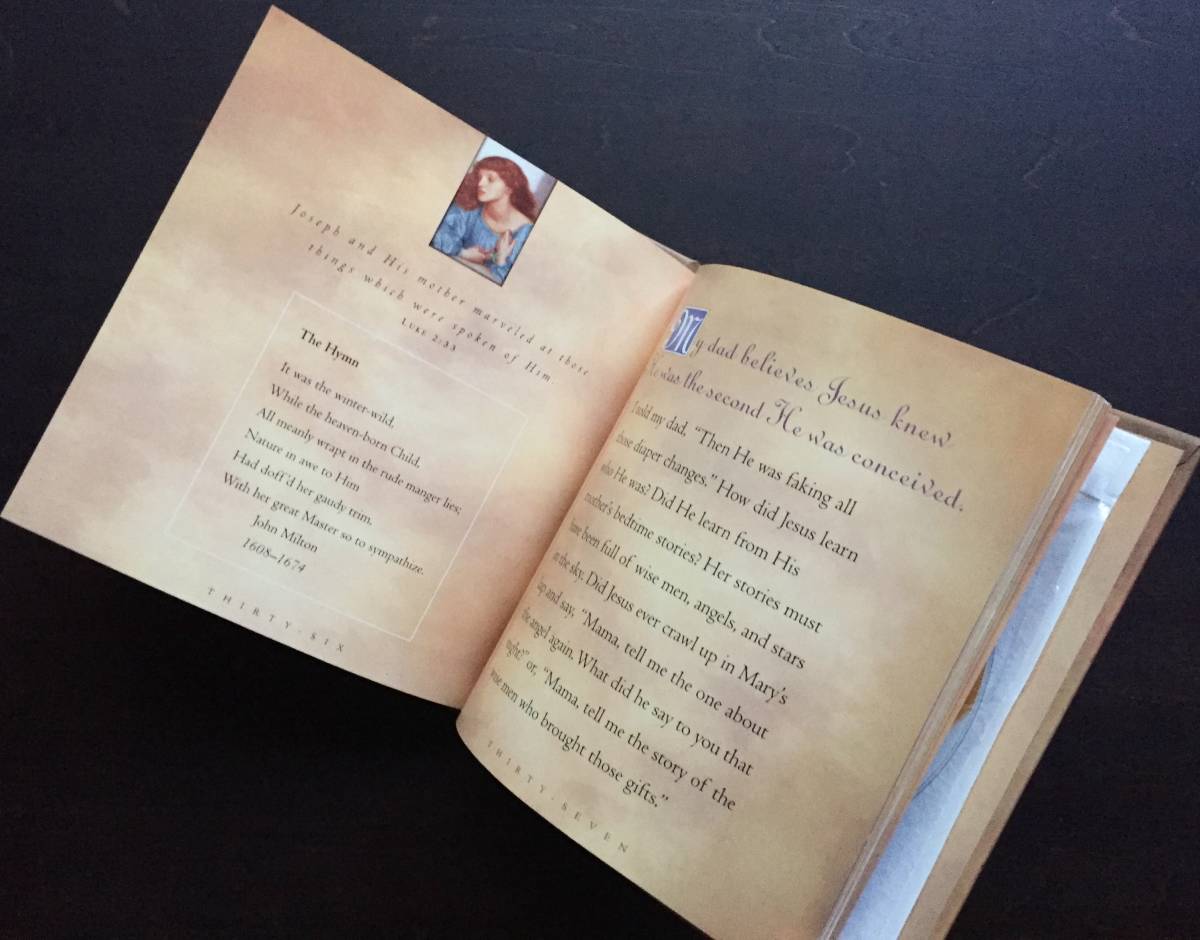 Joseph and His mother marveled at those
things which were spoken of Him.
LUKE 2:33
The Hymn
It was the winter-wild,
While the heaven-born Child,
All meanly wrapt in the rude manger lies;
Nature in awe to Him
Had doff'd her gaudy trim,
With her great Master so to sympathize.
John Milton
1608–1674
THIRTY-SIX
My dad believes Jesus knew
He was the second He was conceived.
I told my dad, “Then He was faking all
those diaper changes.” How did Jesus learn
who He was? Did He learn from His
mother's bedtime stories? Her stories must
have been full of wise men, angels, and stars
in the sky. Did Jesus ever crawl up in Mary's
lap and say, “Mama, tell me the one about
the angel again. What did he say to you that
night?” or, “Mama, tell me the story of the
wise men who brought those gifts.”
THIRTY-SEVEN